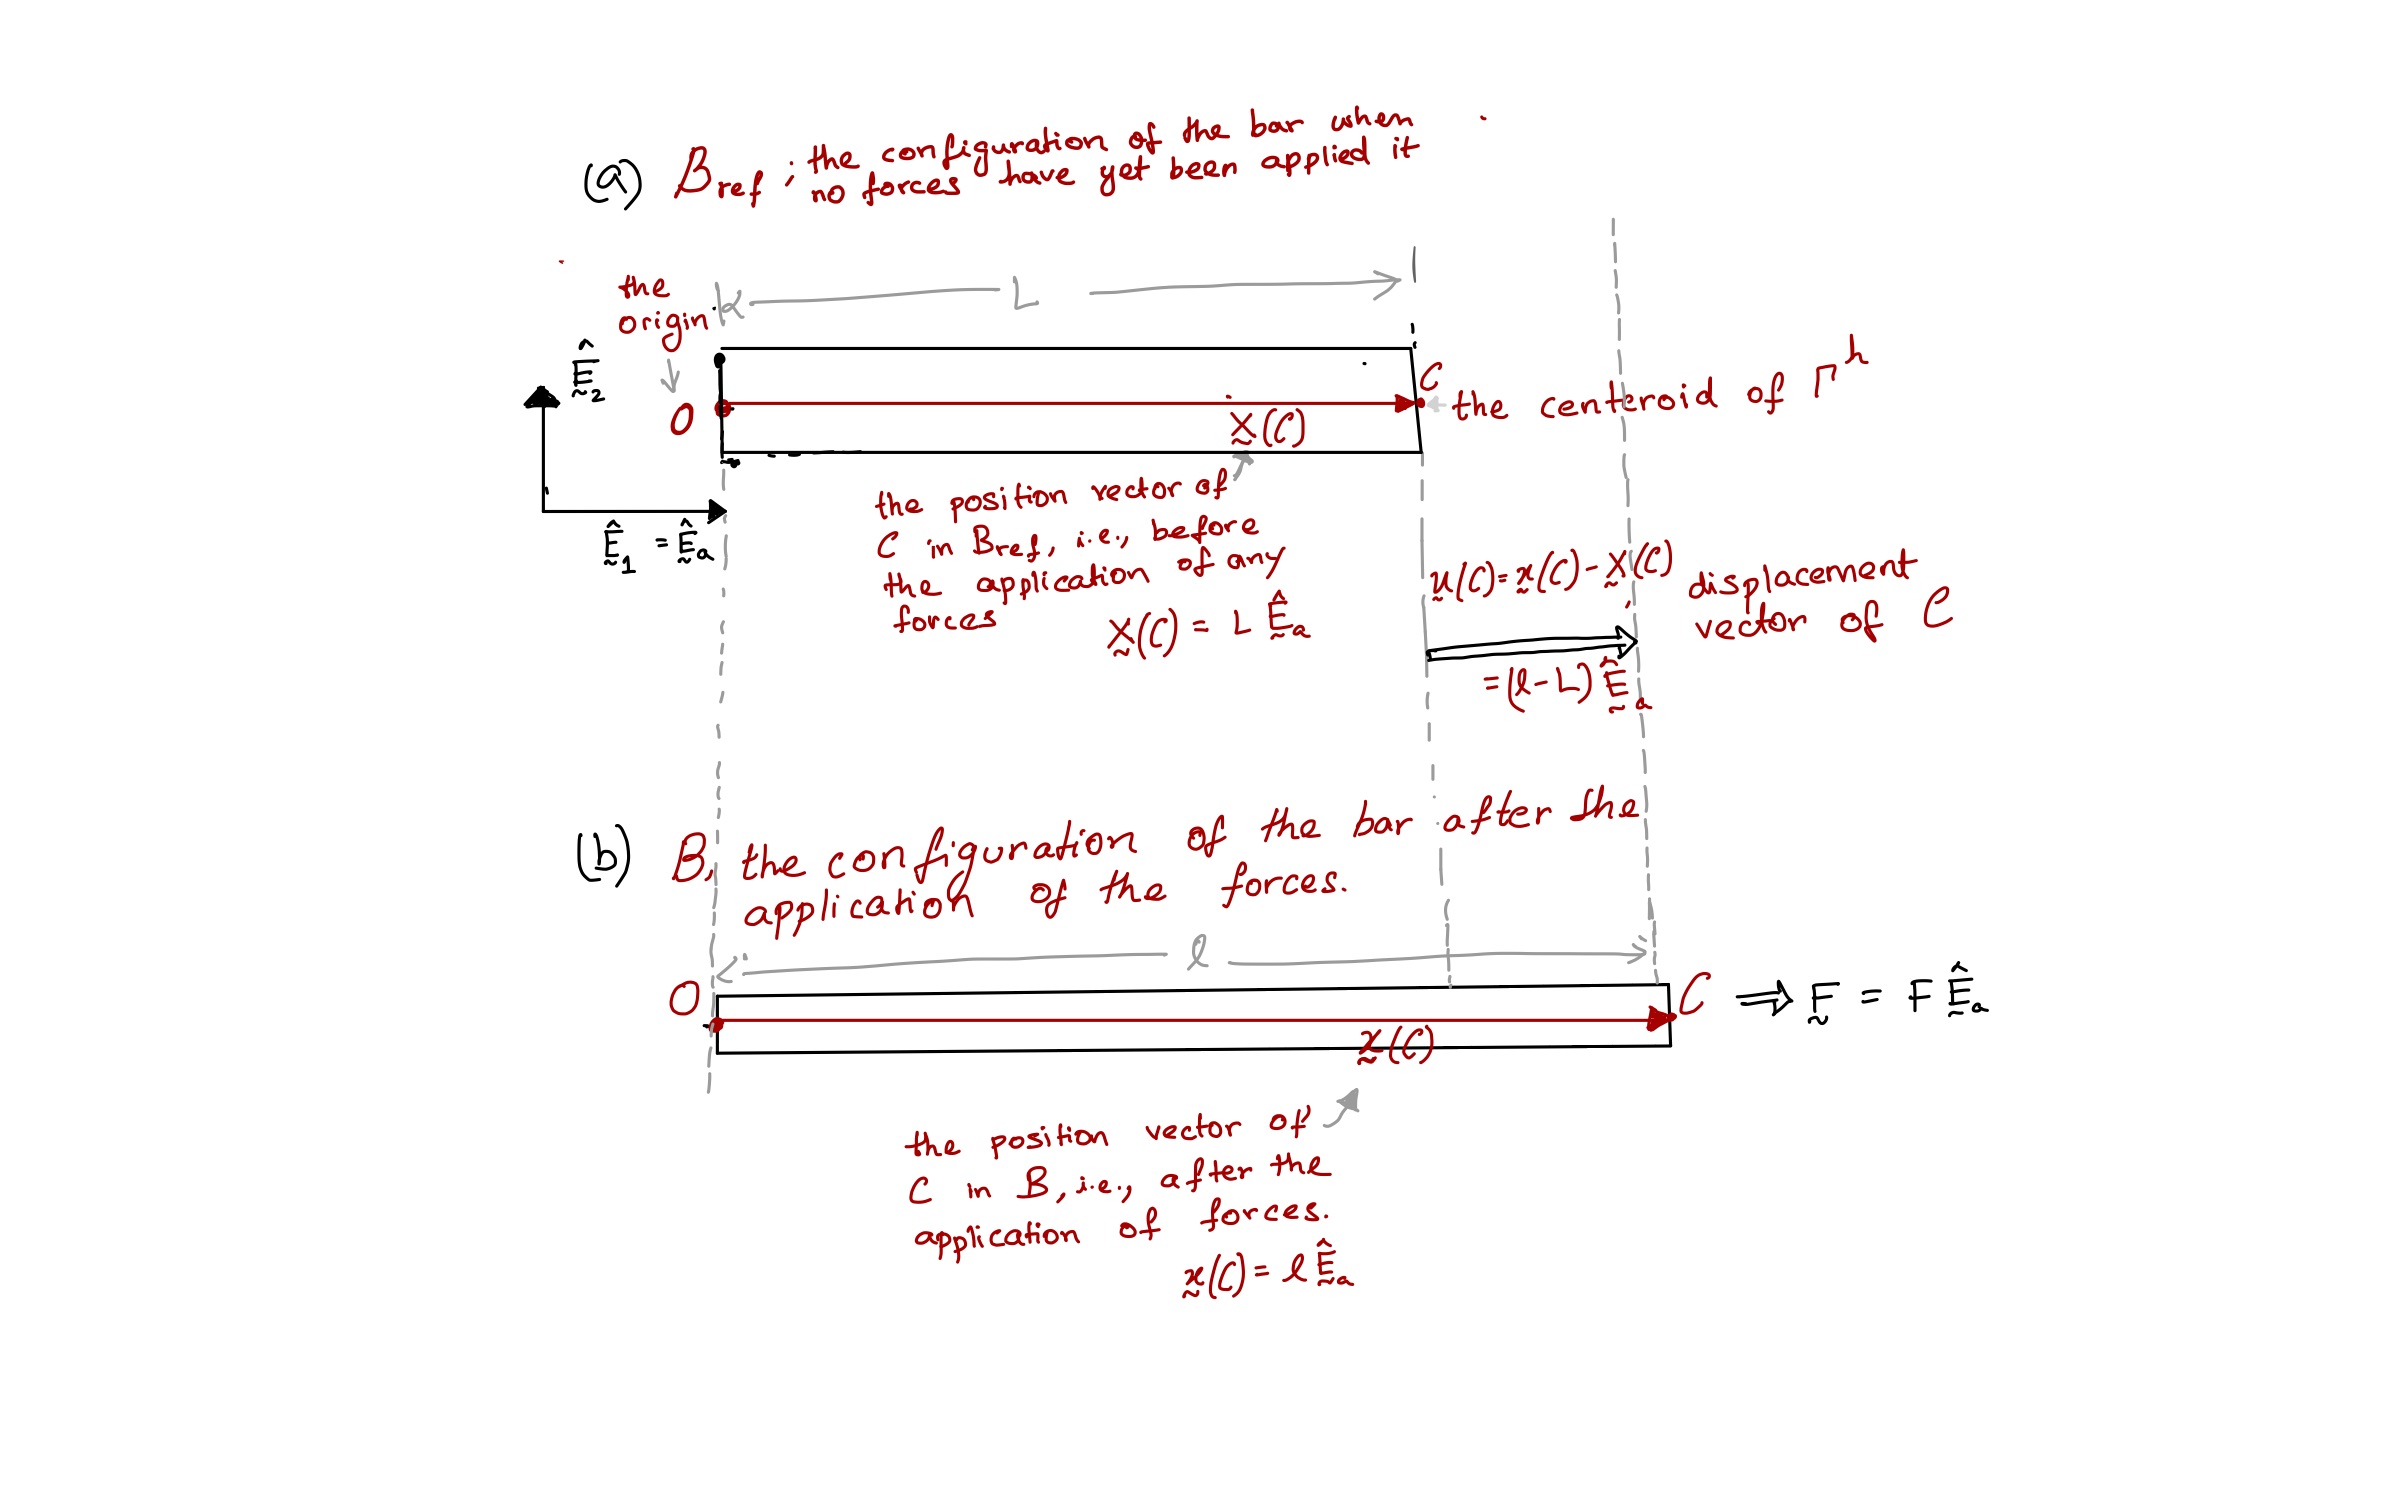 (a) B_ref ; the configuration of the bar when
no forces have yet been applied it
L
the
origin
Ê_2
O
C
the centeroid of Γ^h
X(C)
Ê_1 = Ê_a
the position vector of
C in B_ref, i.e., before
the application of any
forces
X(C) = L Ê_a
u(C) = x(C) - X(C)
= (l - L) Ê_a
displacement
vector of C
(b) B, the configuration of the bar after the
application of the forces.
l
O
C
⇒ F = F Ê_a
x(C)
the position vector of
C in B, i.e., after the
application of forces.
x(C) = l Ê_a